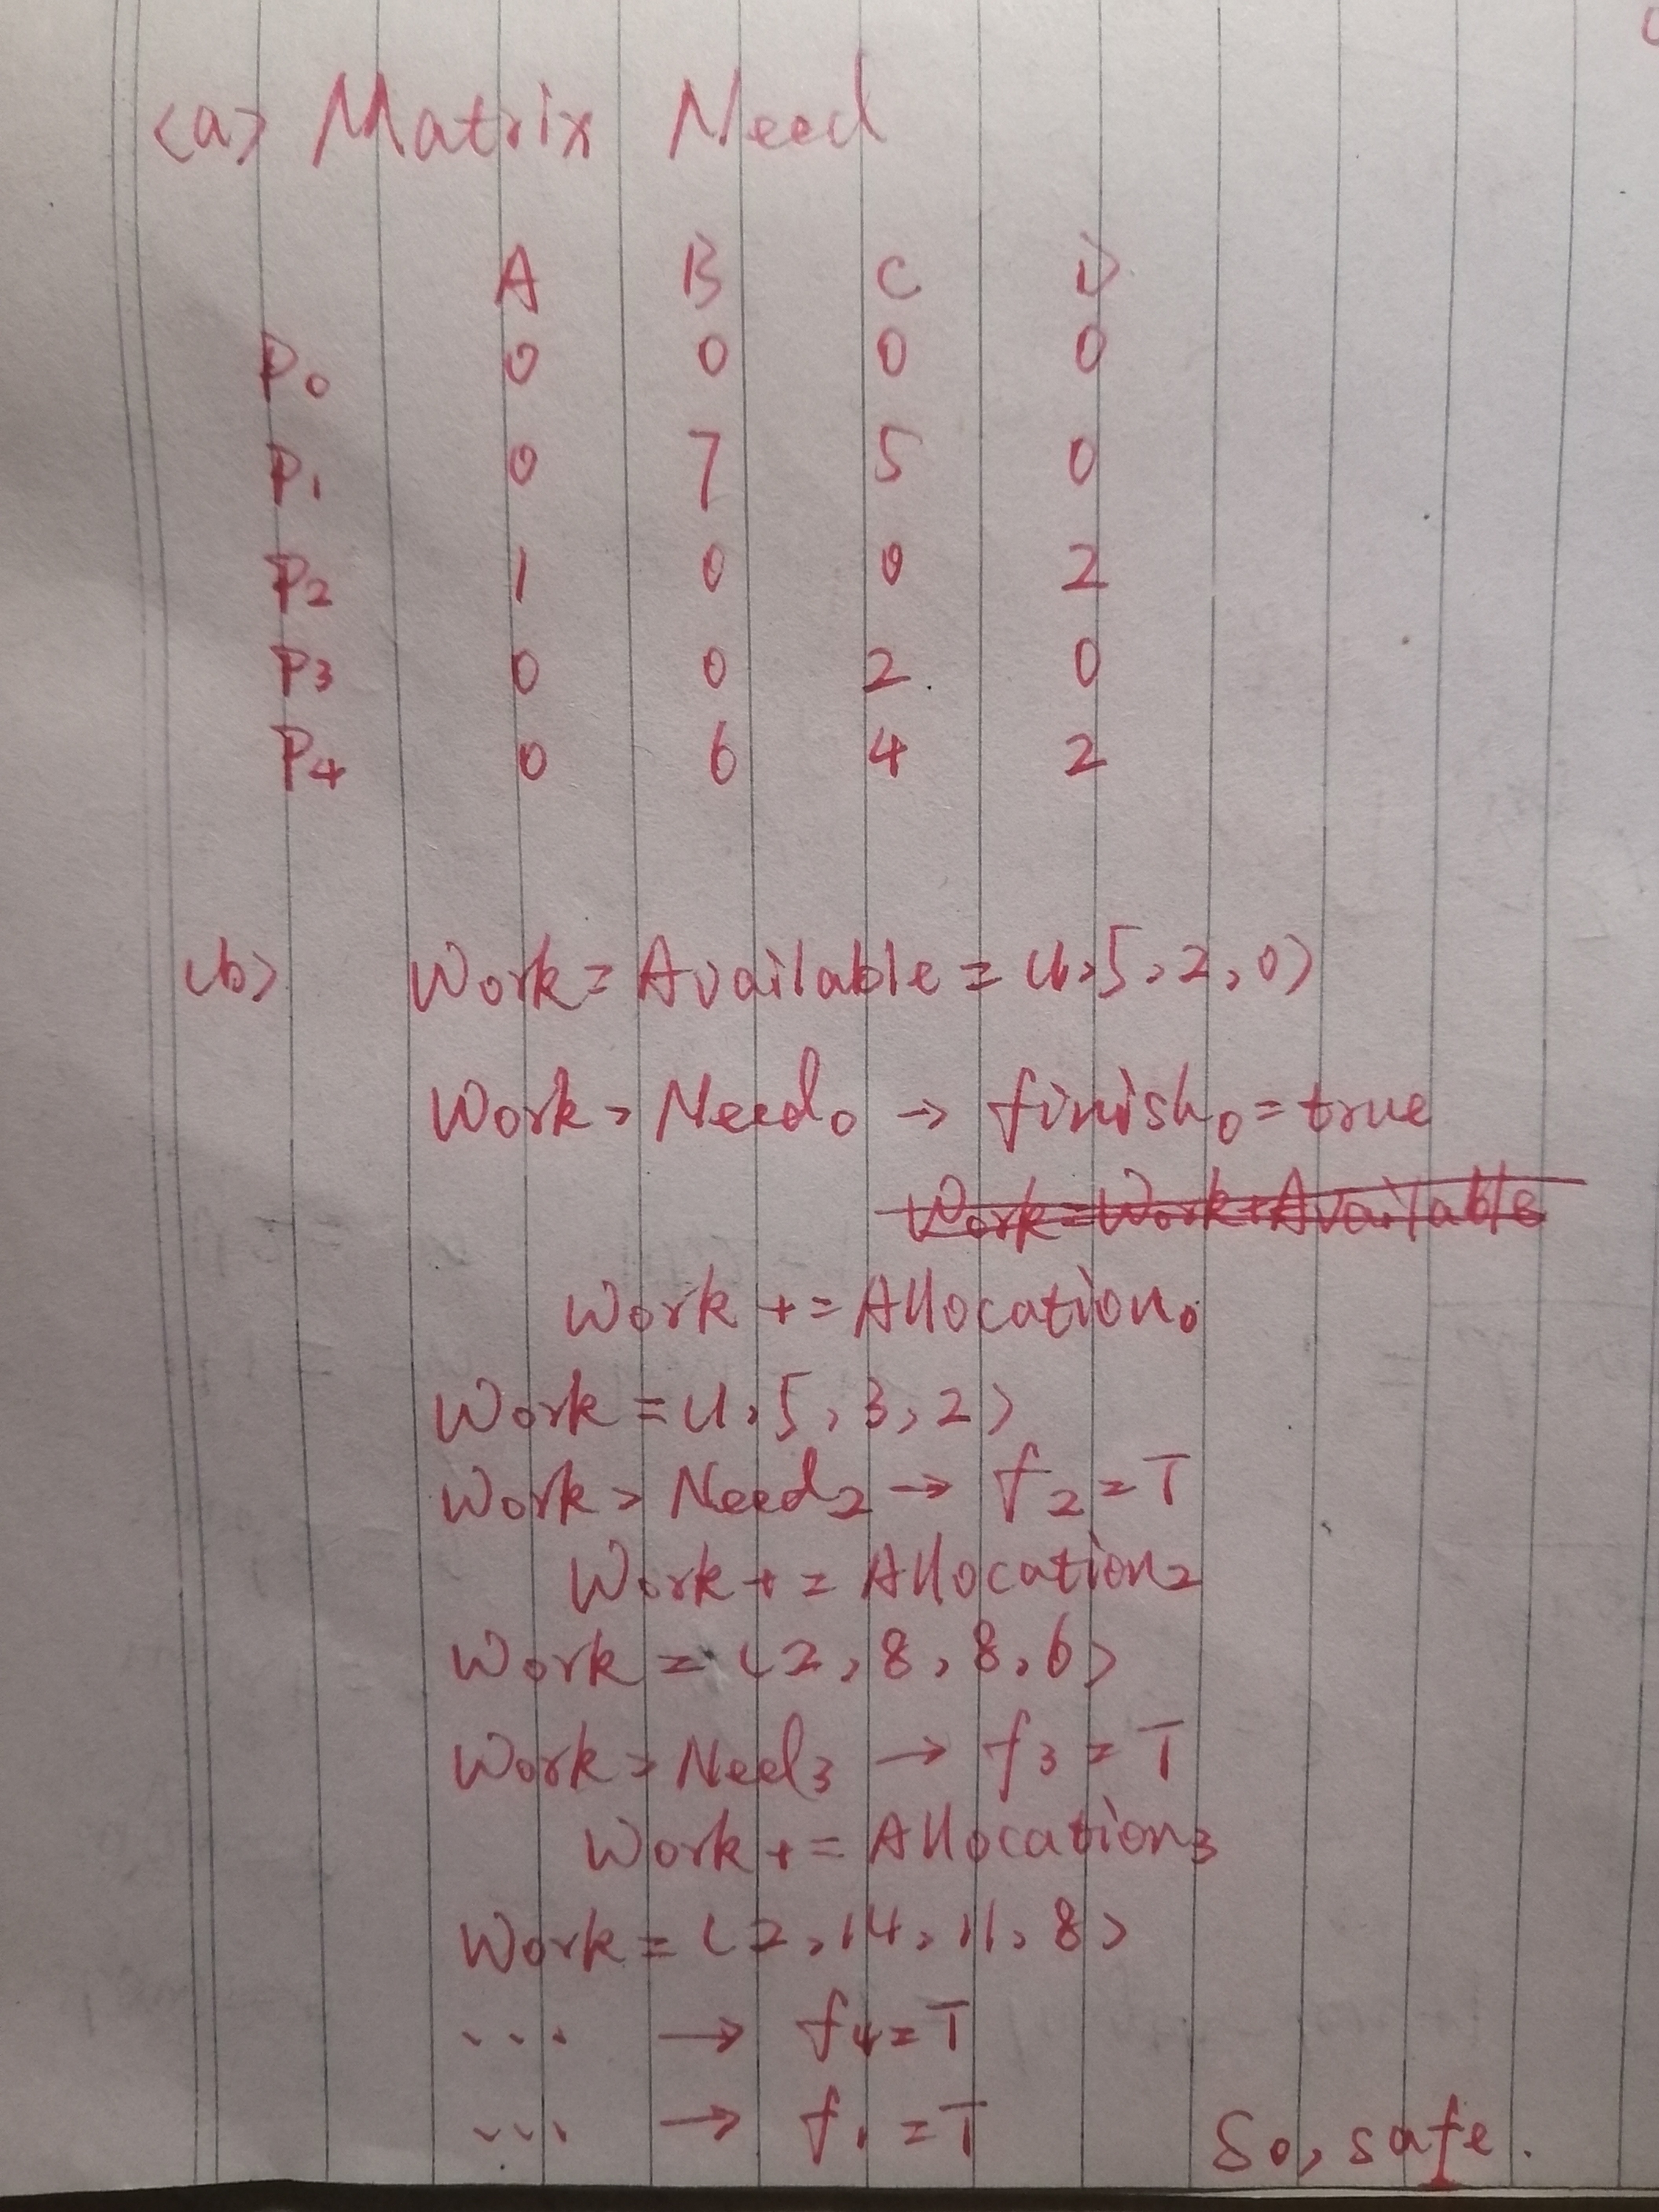 (a) Matrix Need
A B C D
P0 0 0 0 0
P1 0 7 5 0
P2 1 0 0 2
P3 0 0 2 0
P4 0 6 4 2
(b) Work = Available = (1, 5, 2, 0)
Work > Need0 → finish0 = true
Work = Work + Available
Work += Allocation0
Work = (1, 5, 3, 2)
Work > Need2 → f2 = T
Work += Allocation2
Work = (2, 8, 8, 6)
Work > Need3 → f3 = T
Work += Allocation3
Work = (2, 14, 11, 8)
... → f4 = T
... → f1 = T So, safe.